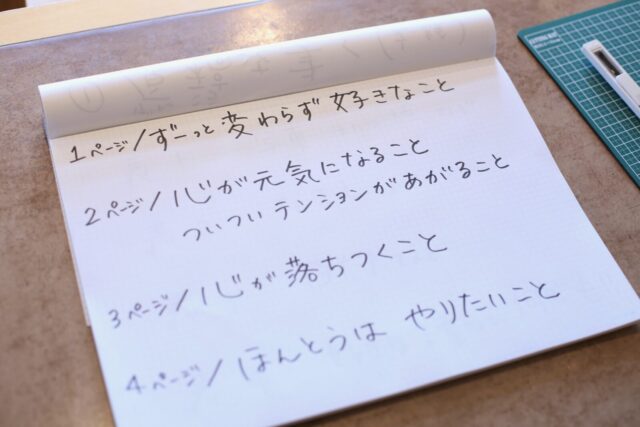 1ページ/ずーっと変わらず好きなこと
2ページ/心が元気になること
ついついテンションがあがること
3ページ/心が落ちつくこと
4ページ/ほんとうは やりたいこと